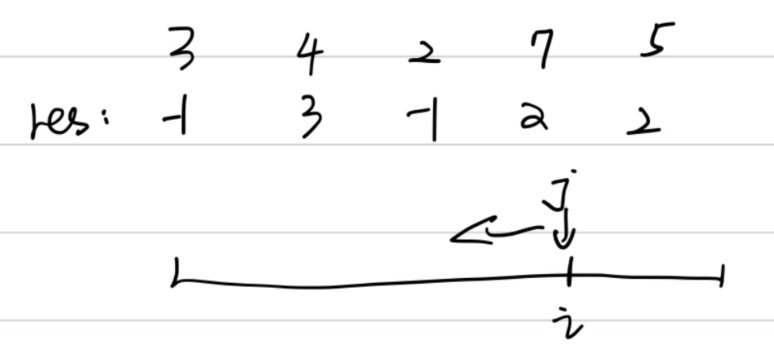 3 4 2 7 5
res: -1 3 -1 2 2
j
i